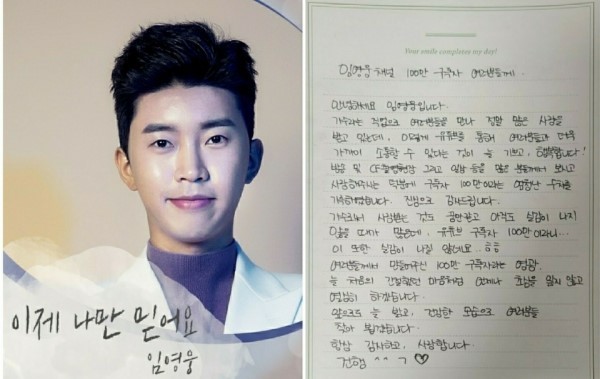 이제 나만 믿어요
임영웅
Your smile completes my day!
임영웅 채널 100만 구독자 여러분들께.
안녕하세요 임영웅입니다.
가수라는 직업으로 여러분들을 만나 정말 많은 사랑을
받고 있는데, 이렇게 유튜브를 통해 여러분들과 더욱
가까이 소통할 수 있다는 것이 늘 기쁘고, 행복합니다!
방송 및 CF촬영현장 그리고 일상 등을 많은 분들께서 보시고
사랑해주시는 덕분에 구독자 100만이라는 엄청난 숫자를
기록하였습니다. 진심으로 감사드립니다.
가수로서 사랑받는 것도 꿈만같고 아직도 실감이 나지
않을 때가 많은데, 유튜브 구독자 100만이라니...
이 또한 실감이 나질 않네요. ㅎㅎ
여러분들께서 만들어주신 100만 구독자라는 영광
늘 처음의 간절했던 마음처럼 언제나 초심을 잃지 않고
열심히 하겠습니다.
앞으로도 늘 밝고, 건강한 모습으로 여러분들
찾아 뵙겠습니다.
항상 감사하고, 사랑합니다.
건행 ^^ ㄱ ♡